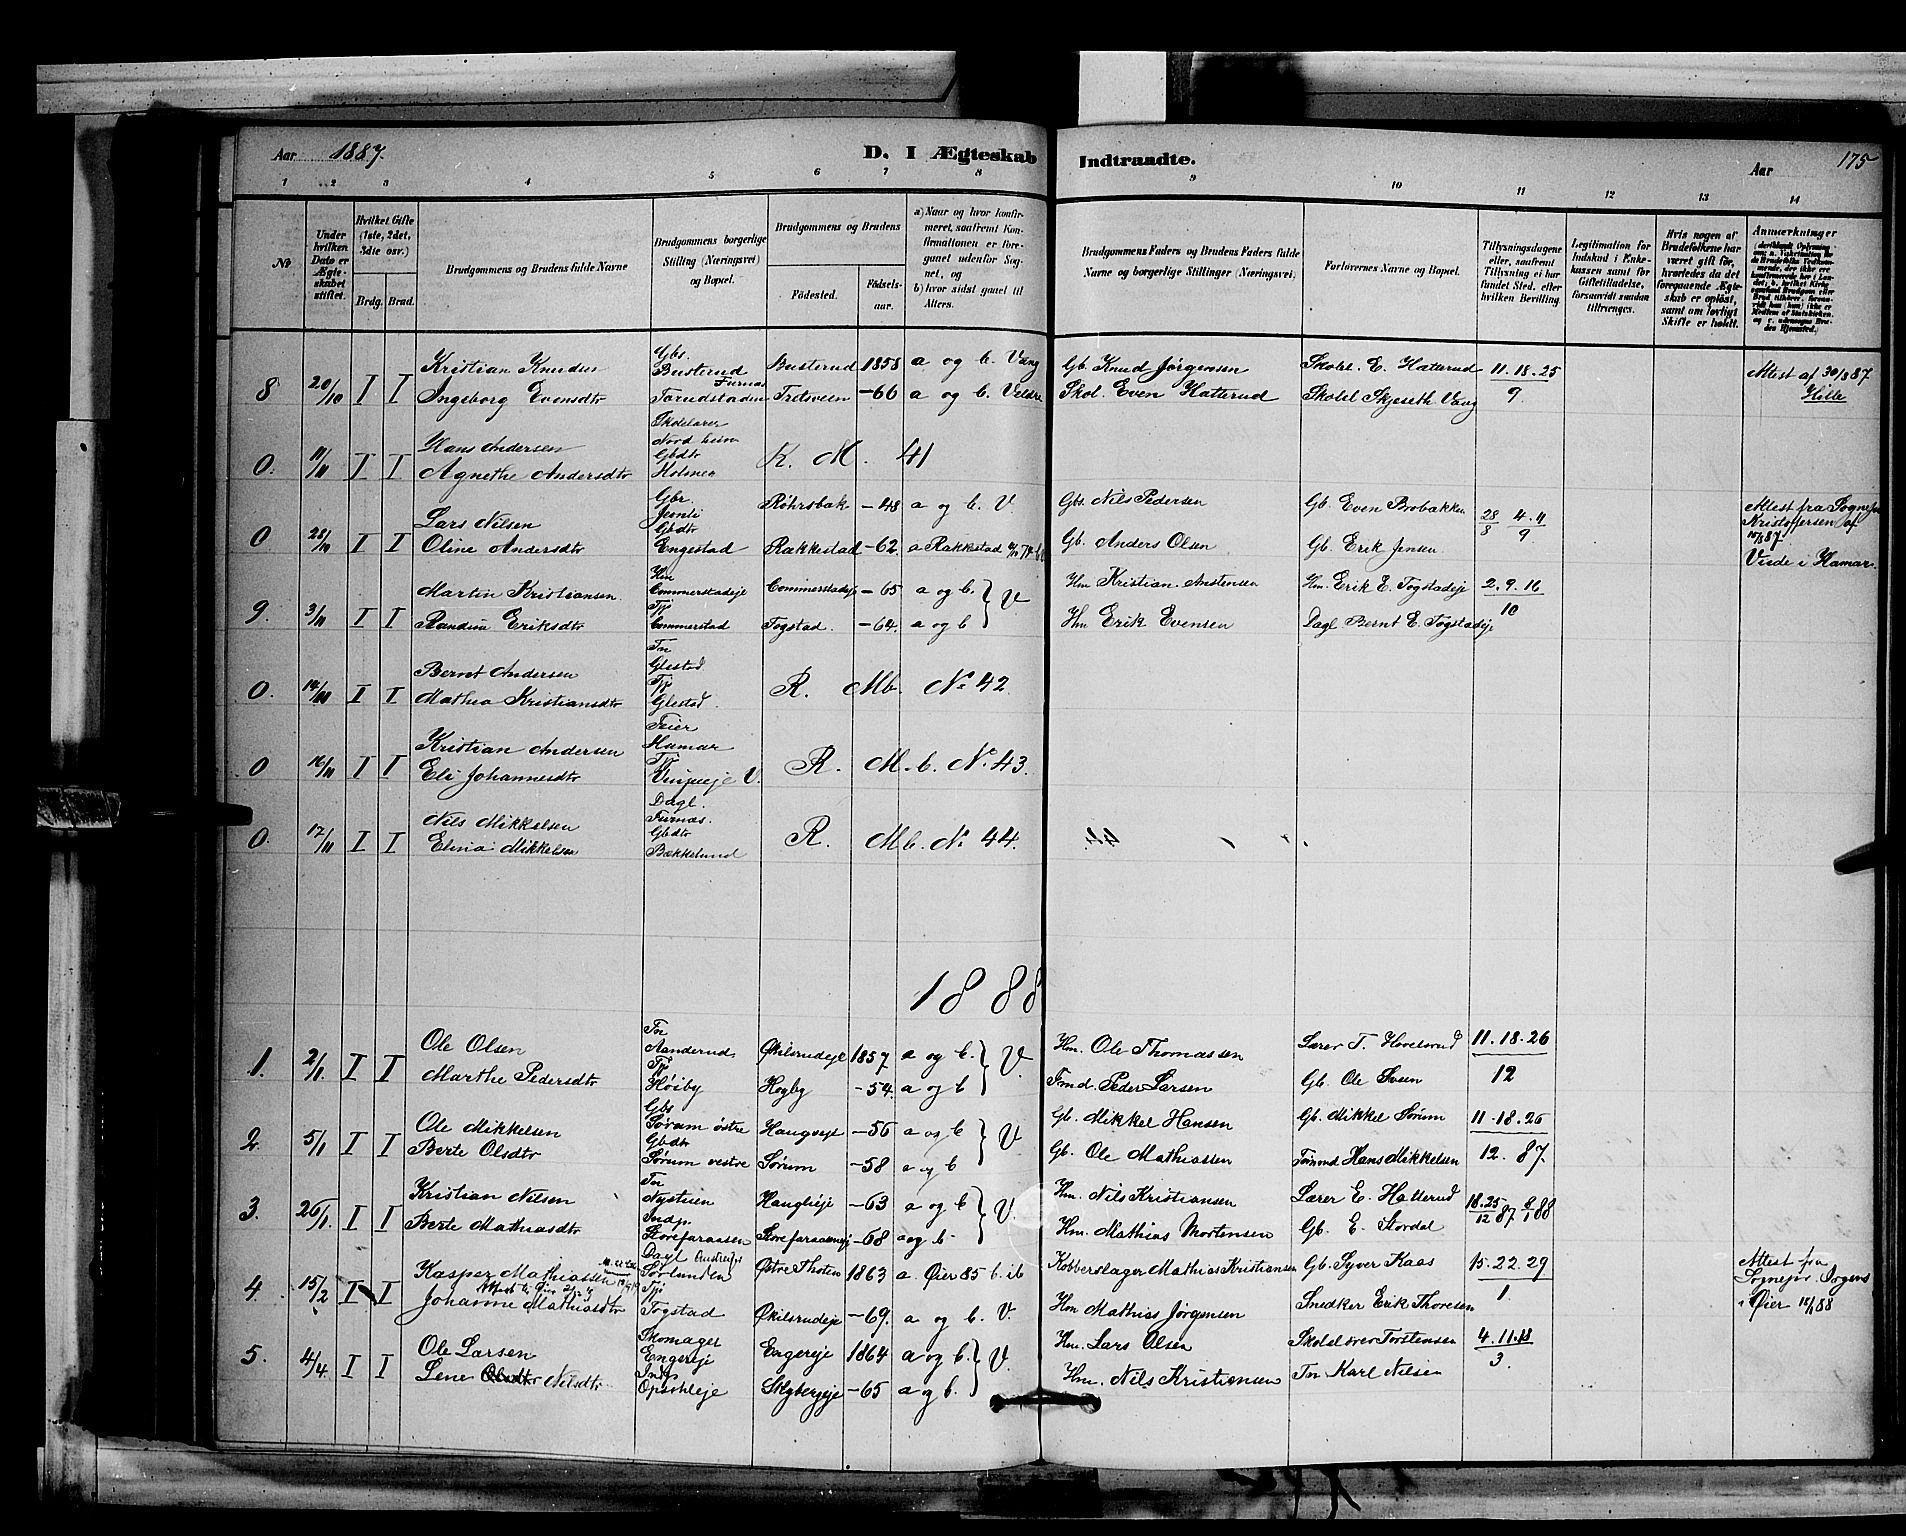 Aar 1887. D. I Ægteskab Indtraadte. Aar 175
1 2 3 4 5 6 7 8 9 10 11 12 13 14
No
Under hvilken Dato er Ægteskabet stiftet.
Hvilket Gifte (1ste, 2det, 3die osv.)
Brdg. Brud.
Brudgommens og Brudens fulde Navne
Brudgommens borgerlige Stilling (Næringsvei) og Bopæl.
Brudgommens og Brudens
Fødested. Fødselsaar.
a) Naar og hvor konfirmeret, saafremt Konfirmationen er foregaaet udenfor Sognet, og
b) hvor sidst gaaet til Alters.
Brudgommens Faders og Brudens Faders fulde Navne og borgerlige Stillinger (Næringsvei).
Forlovernes Navne og Bopæl.
Tillysningsdagene eller, saafremt Tillysning ei har fundet Sted, efter hvilken Bevilling.
Legitimation for Indskud i Enkekassen samt for Giftetilladelse, forsaavidt saadan tiltrænges.
Hvis nogen af Brudefolkene har været gift før, hvorledes da det foregaaende Ægteskab er opløst, samt om lovligt Skifte er holdt.
Anmærkninger
8 20/10 I I Kristian Knudsen Gbs. Busterud Furnæs Busterud 1858 a og b. Vang Gb. Knud Jørgensen Skolel. E. Hatterud 11.18.25 Attest af 30/8 87
Ingeborg Evensdtr Trotveen -66 a og b. Veldre Skol. Even Hatterud Skolel Skjeseth Vang 9 Hille
0. 11/11 I I Hans Andersen Skolelærer Nordheim
Agnethe Andersdtr Gbdtr Holmen K. M. 41
0 28/10 I I Lars Nilsen Gbr. Jemli Røhrsbak -48 a og b. V Gbs. Nils Pedersen Gb. Even Brobakken 28/8 4.11/9 Attest fra Sognepr Kristoffersen af
Oline Andersdtr Gbdtr Engestad Rakkestad -62. a Rakkestad Gb. Anders Olsen Gb. Erik Jensen Viede i Hamar.
9. 3/11 I I Martin Kristiansen Hm Commerstadeje Commerstadeje -65 a og b. V Hm Kristian Anstensen Hm. Erik E. Togstadeje 2.9.16
Randine Eriksdtr Tp Commerstad Togstad. -64. a og b Hm Erik Evensen Dagl Bernt E. Togstadeje 10
0. 14/11 I I Bernt Andersen Tn Glestad
Mathea Kristiansdtr Tp Glestad. R. Mb. No 42
0 16/11 I I Kristian Andersen Feier Hamar
Eli Johannesdtr Tp V. R. M.b. No 43.
0. 17/11 I I Nils Mikkelsen Dagl. Furnæs.
Elina Mikkelsen Gbdtr Bækkelund R. M b. No 44.
1888
1. 2/1. I I Ole Olsen Tn Aanderud Økilsrudeje 1857 a og b. V. Hm. Ole Thomassen Lærer T. Hovelsrud 11.18.26
Marthe Pedersdtr Tp Høiby Hogby -54. a og b Fmd. Peder Larsen Gb. Ole Sveen 12
2. 5/1 I I Ole Mikkelsen Gbs Sørum østre Haugveje -56 a og b V Gb. Mikkel Hansen Gb. Mikkel Sørum 11.18.26
Berte Olsdtr Gbdtr Sørum vestre Sørum -58 a og b Gb. Ole Mathiassen Hans Mikkelsen 12. 87.
3. 26/1. I I Kristian Nilsen Tn Nystuen -63 a og b V. Hm. Nils Kristiansen Lærer E. Hatterud 18.25/12 87 8/1 88
Berte Mathiasdtr Indp. Storefaraasen Storefaraaseneje -68 a og b. Hm. Mathias Mortensen Gb. E. Stordal
4. 15/2 I I Kasper Mathiassen Dagl Sørlunden Østre Thoten 1863 a. Øier 85 b. ib Kobberslager Mathias Kristiansen Gb. Syver Kaas 15.22.29 Attest fra Sognepr. Ørgens
Johanne Mathiasdtr Tp. Togstad Økilsrudeje -69. a og b. V. Hm Mathias Jørgensen Snedker Erik Thoresen 1. i Øier 18/1 88
5. 4/4. I I Ole Larsen Skomager Engereje Engereje 1864 a og b. V. Hm. Lars Olsen Skolelærer Torstensen 4.11.18
Lene Olsdtr Nilsdtr. Indp. Skybergeje -65 a og b. Hm. Nils Kristiansen Tn Karl Nilsen 3.